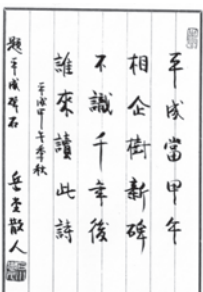 平成當甲午
相企樹新碑
不識千年後
誰來讀此詩
平成甲午季秋
題平成碑石
岳堂散人